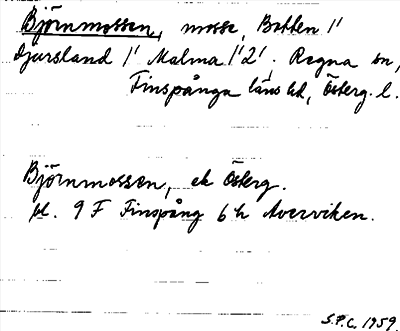 Björnmossen, mosse, Botten 1'
Djursland 1' Malma 1'2'. Regna sn,
Finspånga läns hd, Österg. l.
Björnmossen, ek Österg.
bl. 9 F Finspång 6 h Averviken.
S.P.C. 1959